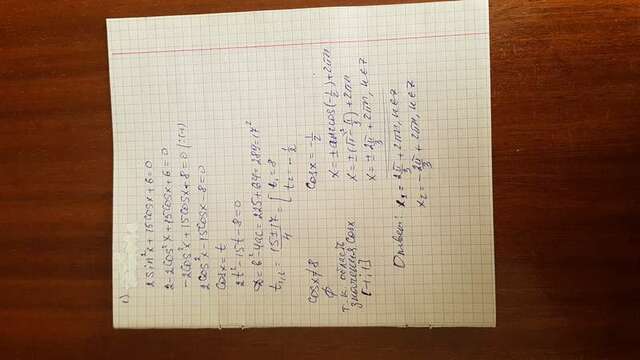 1)
2sin²x + 15cosx + 6 = 0
2 - 2cos²x + 15cosx + 6 = 0
-2cos²x + 15cosx + 8 = 0 |:(-1)
2cos²x - 15cosx - 8 = 0
cosx = t
2t² - 15t - 8 = 0
D = b² - 4ac = 225 + 64 = 289 = 17²
t₁,₂ = (15 ± 17)/4 = [ t₁ = 8
t₂ = -1/2
cosx ≠ 8
∅
т.к область
значения cosx
[-1; 1]
cosx = -1/2
x = ± arccos(-1/2) + 2πn
x = ± (π - π/3) + 2πn
x = ± 2π/3 + 2πn, n∈Z
Ответ: x₁ = 2π/3 + 2πn, n∈Z
x₂ = -2π/3 + 2πn, n∈Z